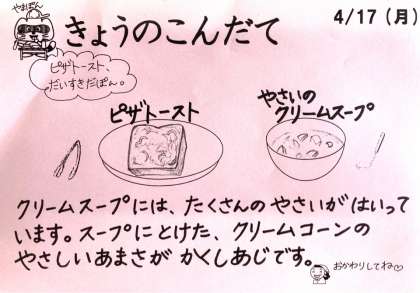 やまぽん
きょうのこんだて
4/17（月）
ピザトースト、
だいすきだぽん。
ピザトースト
やさいの
クリームスープ
クリームスープには、たくさんの やさいが はいって
います。スープに とけた、クリームコーンの
やさしい あまさが かくしあじです。
おかわりしてね♡